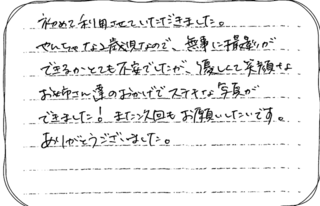 初めて利用させていただきました。
やんちゃな2歳児なので、無事に撮影が
できるかとても不安でしたが、優しくて笑顔な
お姉さん達のおかげでステキな写真が
できました!また次回もお願いしたいです。
ありがとうございました。